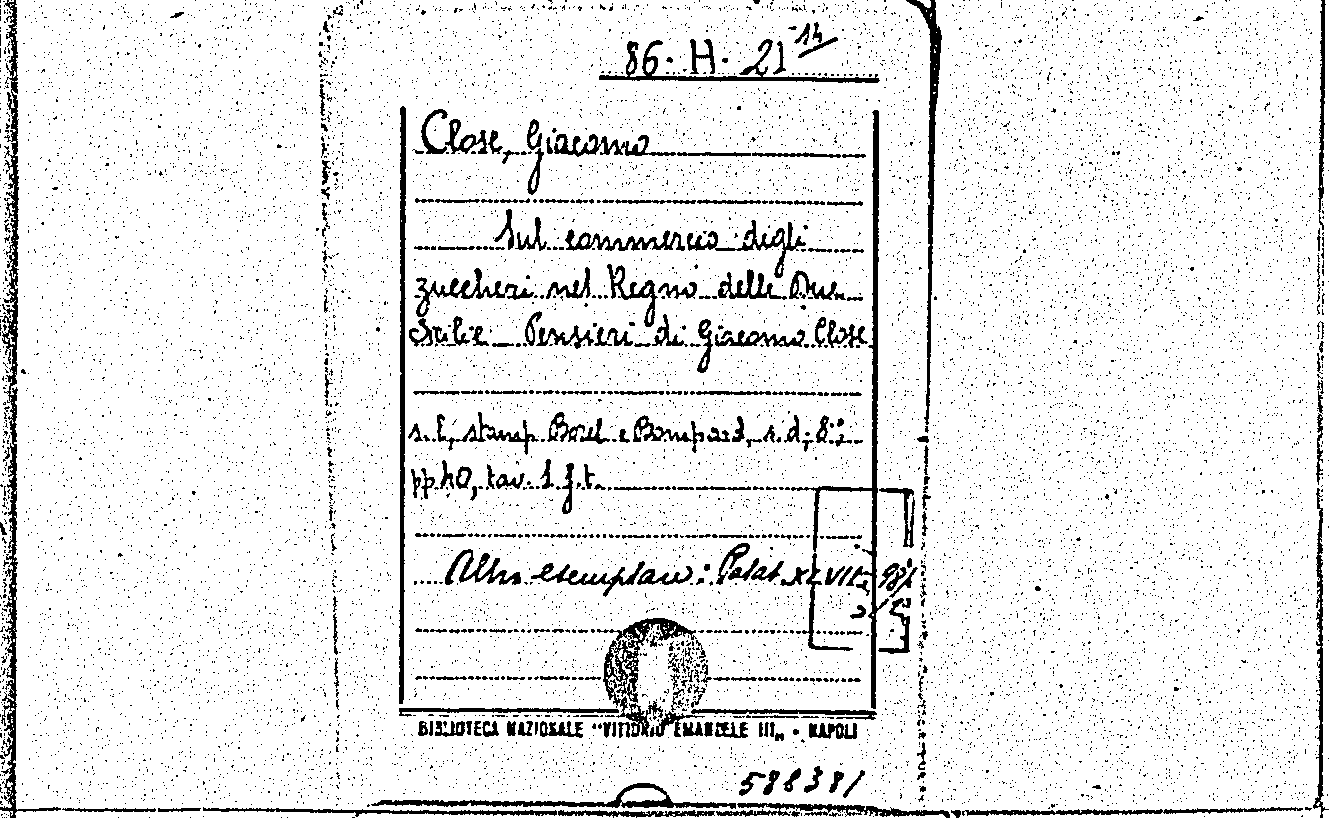 86. H. 21 -14
Close, Giacomo
Sul commercio degli
zuccheri nel Regno delle Due
Sicilie _ Pensieri di Giacomo Close
s. l., stamp. Borel e Bompard, s. d; 8°;
pp 40, tav. 1 f.t.
Altro esemplare: Palat. XLVII
BIBLIOTECA NAZIONALE "VITTORIO EMANUELE III„ - NAPOLI
588381